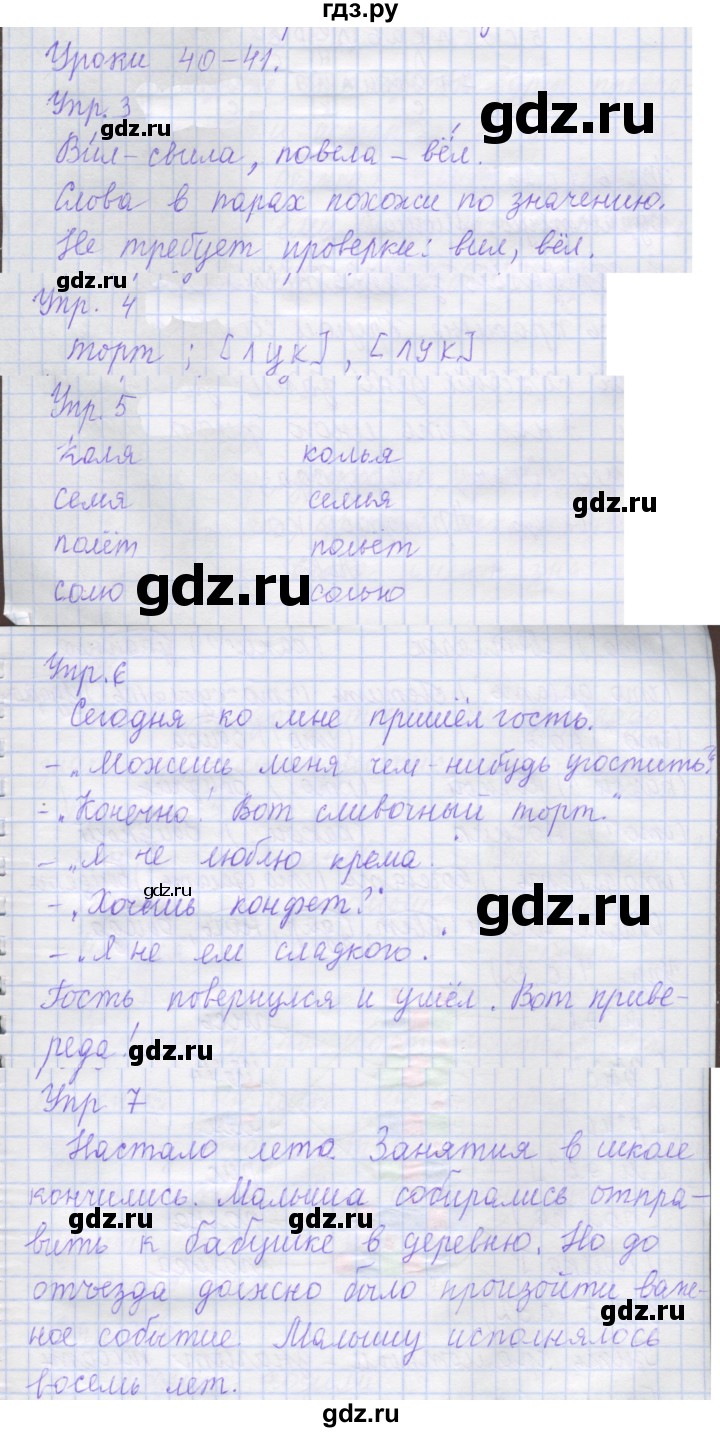 гдз.ру
Уроки 40-41.
Упр. 3
gdz.ru
gdz.ru
Вил - свила, повела - вёл.
Слова в парах похожи по значению.
Не требует проверки: вил, вёл.
gdz.ru
Упр. 4
торт ; [лук] , [лук]
Упр. 5
Коля колья
семя семья
gdz.ru
полёт польёт
gdz.ru
солю солью
Упр. 6
Сегодня ко мне пришёл гость.
- „Можешь меня чем-нибудь угостить?"
- „Конечно! Вот сливочный торт."
- „Я не люблю крема."
gdz.ru
- „Хочешь конфет?"
gdz.ru
- „Я не ем сладкого."
Гость повернулся и ушёл. Вот приве-
реда!
gdz.ru
Упр 7
Настало лето. Занятия в школе
кончились. Малыша собирались отпра-
gdz.ru
gdz.ru
вить к бабушке в деревню. Но до
отъезда должно было произойти важ-
gdz.ru
ное событие. Малышу исполнялось
восемь лет.
gdz.ru